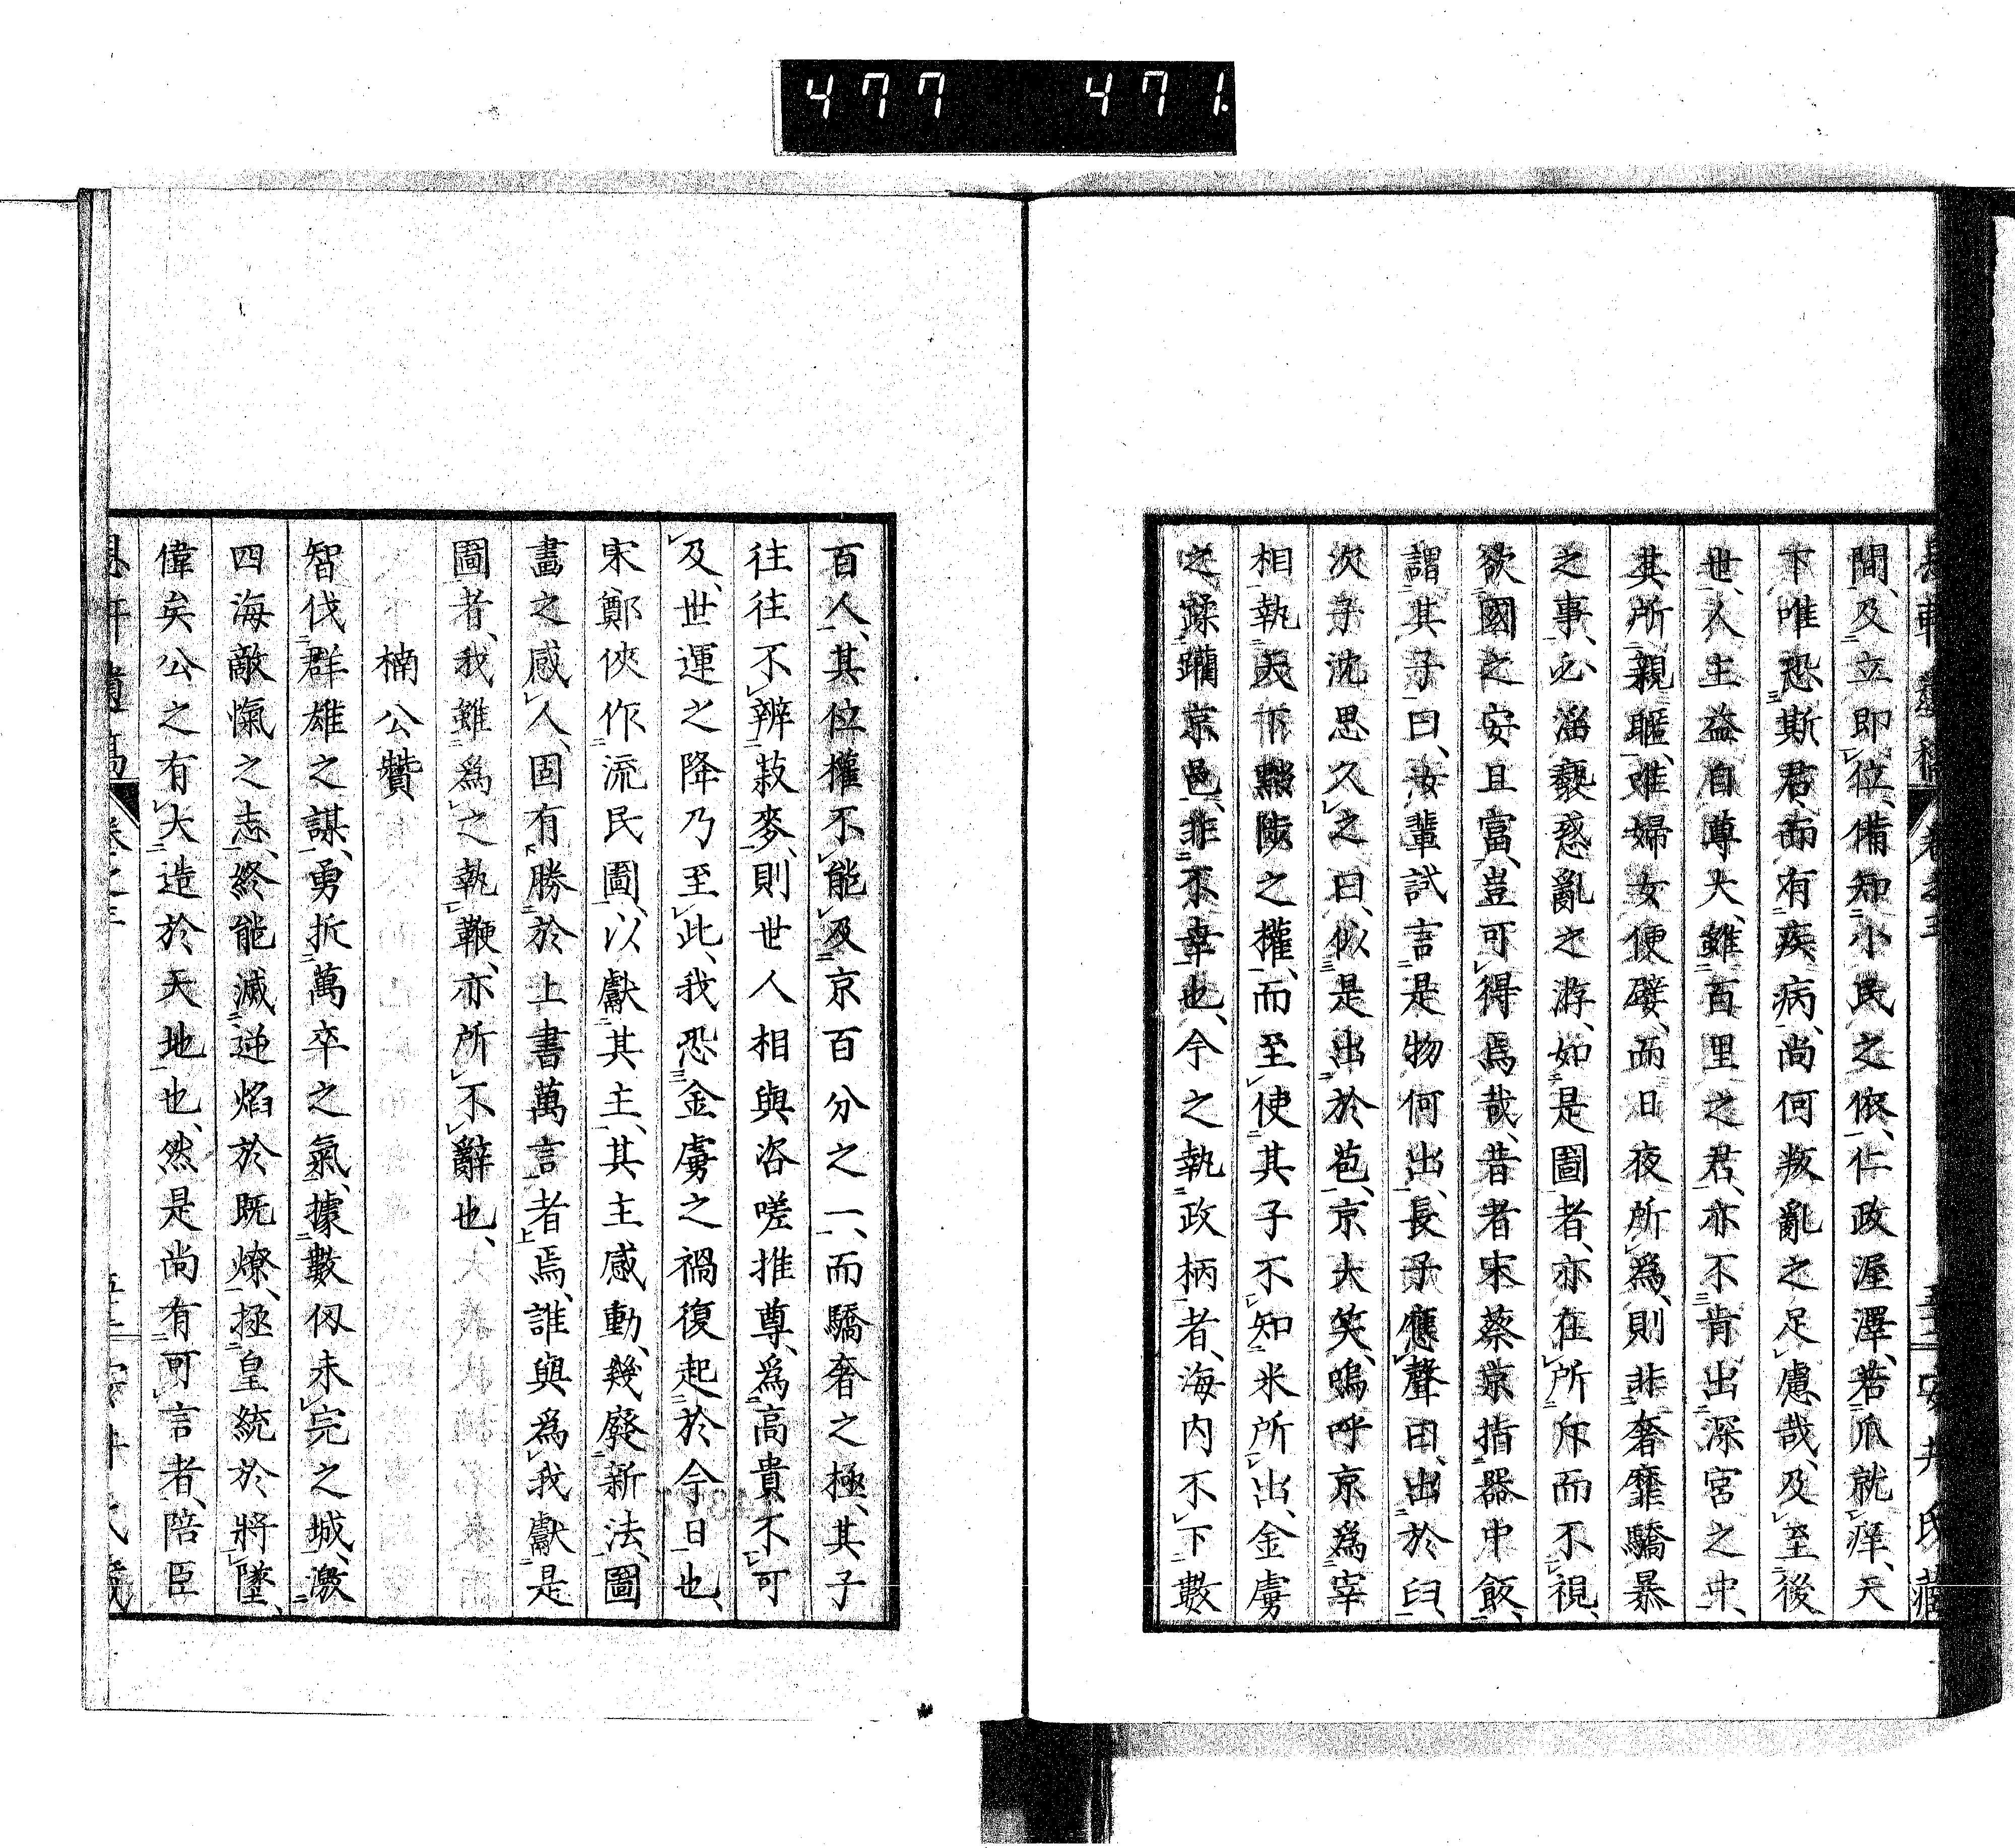 477 471
間、及立即位、備知小民之依、仁政渥澤、若爪就痒、天
下唯恐斯君而有疾病、尚何叛亂之足慮哉、及至後
世、人主益自尊大、雖百里之君、亦不肯出深宮之中、
其所親暱、唯婦女便嬖、而日夜所爲、則非奢靡驕暴
之事、必湎褻惑亂之游、如是圖者、亦在所斥而不視、
欲國之安且富、豈可得焉哉、昔者宋蔡京指器中飯、
謂其子曰、汝輩試言是物何出、長子應聲曰、出於臼、
次子沈思久之曰、似是出於苞、京大笑、嗚呼京爲宰
相執天下黜陟之權、而至使其子不知米所出、金虜
之蹂躪京邑、非不幸也、今之執政柄者、海内不下數
百人、其位權不能及京百分之一、而驕奢之極、其子
往往不辨菽麥、則世人相與咨嗟推尊、爲高貴不可
及、世運之降乃至此、我恐金虜之禍復起於今日也、
宋鄭俠作流民圖、以獻其主、其主感動、幾廢新法、圖
畫之感人、固有勝於上書萬言者焉、誰與爲我獻是
圖者、我雖爲之執鞭、亦所不辭也、
楠公贊
智伐群雄之謀、勇折萬卒之氣、據數仞未完之城、激
四海敵愾之志、終能滅逆焰於既燎、拯皇統於將墜、
偉矣公之有大造於天地也、然是尚有可言者、陪臣